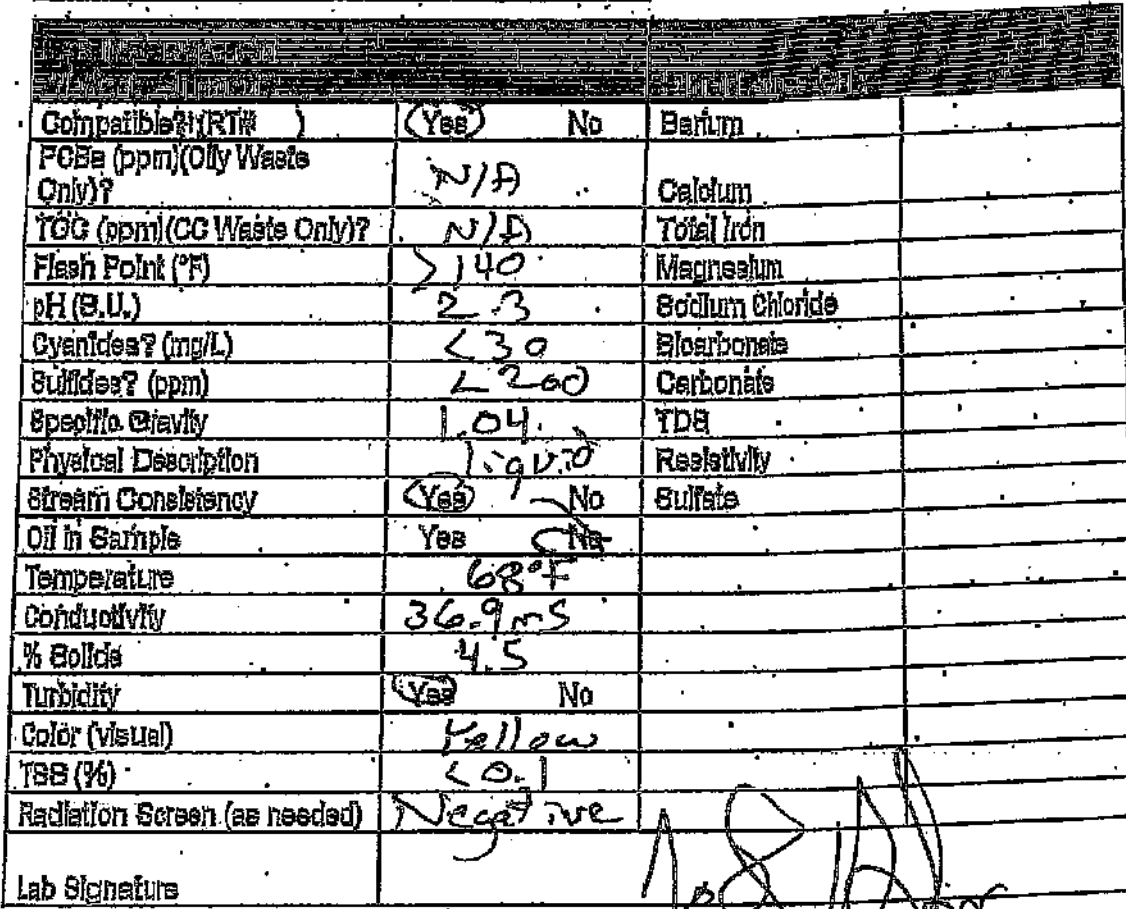 Compatible? (RT# ) Yes No Barium
PCBs (ppm)(Oily Waste
Only)? N/A Calcium
TOC (ppm)(CC Waste Only)? N/A Total Iron
Flash Point (°F) >140 Magnesium
pH (S.U.) 2.3 Sodium Chloride
Cyanides? (mg/L) <30 Bicarbonate
Sulfides? (ppm) <200 Carbonate
Specific Gravity 1.04 TDS
Physical Description Liquid Resistivity
Stream Consistency Yes No Sulfate
Oil in Sample Yes No
Temperature 68°F
Conductivity 36.9 mS
% Solids 4.5
Turbidity Yes No
Color (visual) Yellow
TSS (%) <0.1
Radiation Screen (as needed) Negative
Lab Signature